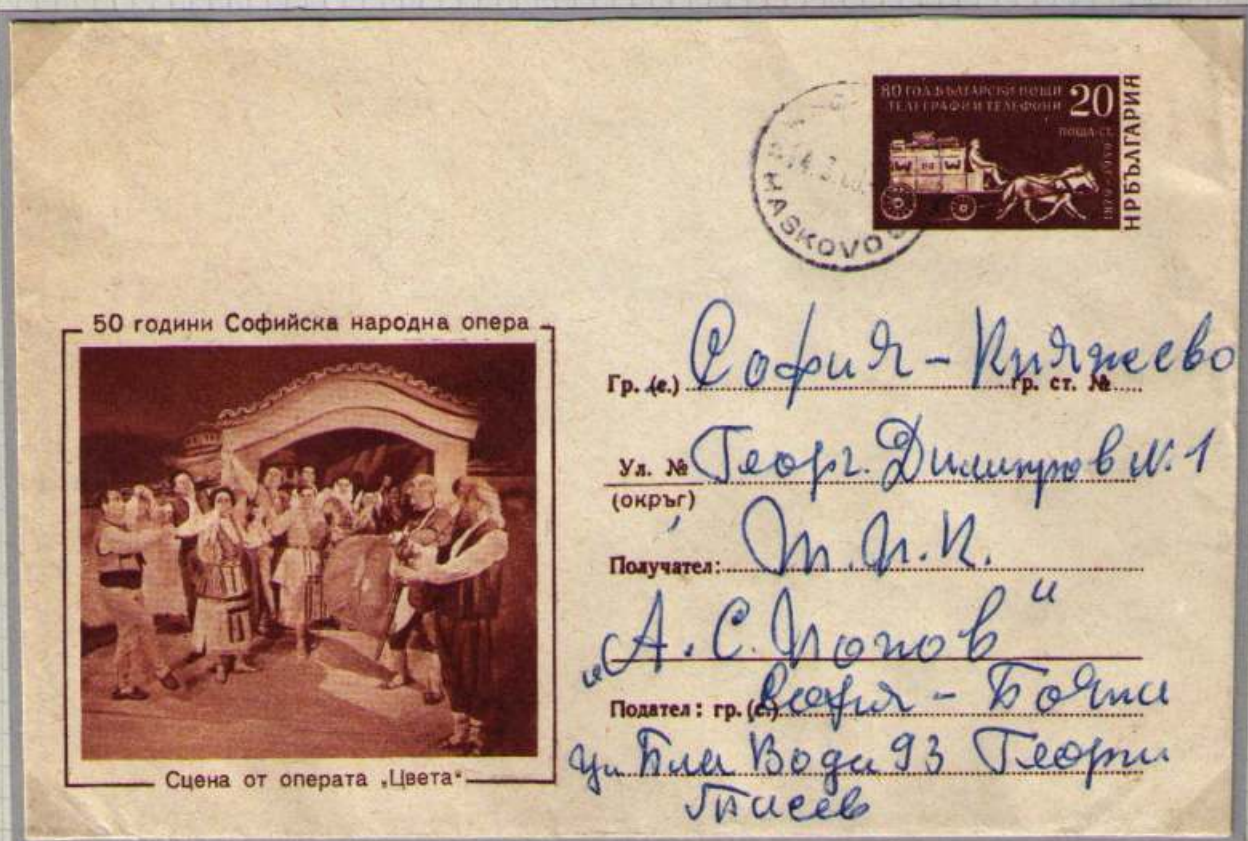 80 ГОД. БЪЛГАРСКИ ПОЩИ
ТЕЛЕГРАФИ И ТЕЛЕФОНИ
20
ПОЩА-СТ.
1879-1959
НРБЪЛГАРИЯ
14.3.60.
HASKOVO
50 години Софийска народна опера
Сцена от операта „Цвета“
Гр. (с.) София - Княжево гр. ст. №
Ул. № Георг. Димитров №. 1
(окръг)
Получател: Т.П.К.
„А.С. Попов“
Подател: гр. (с.) София - Бояна
ул Бели Води 93 Георги